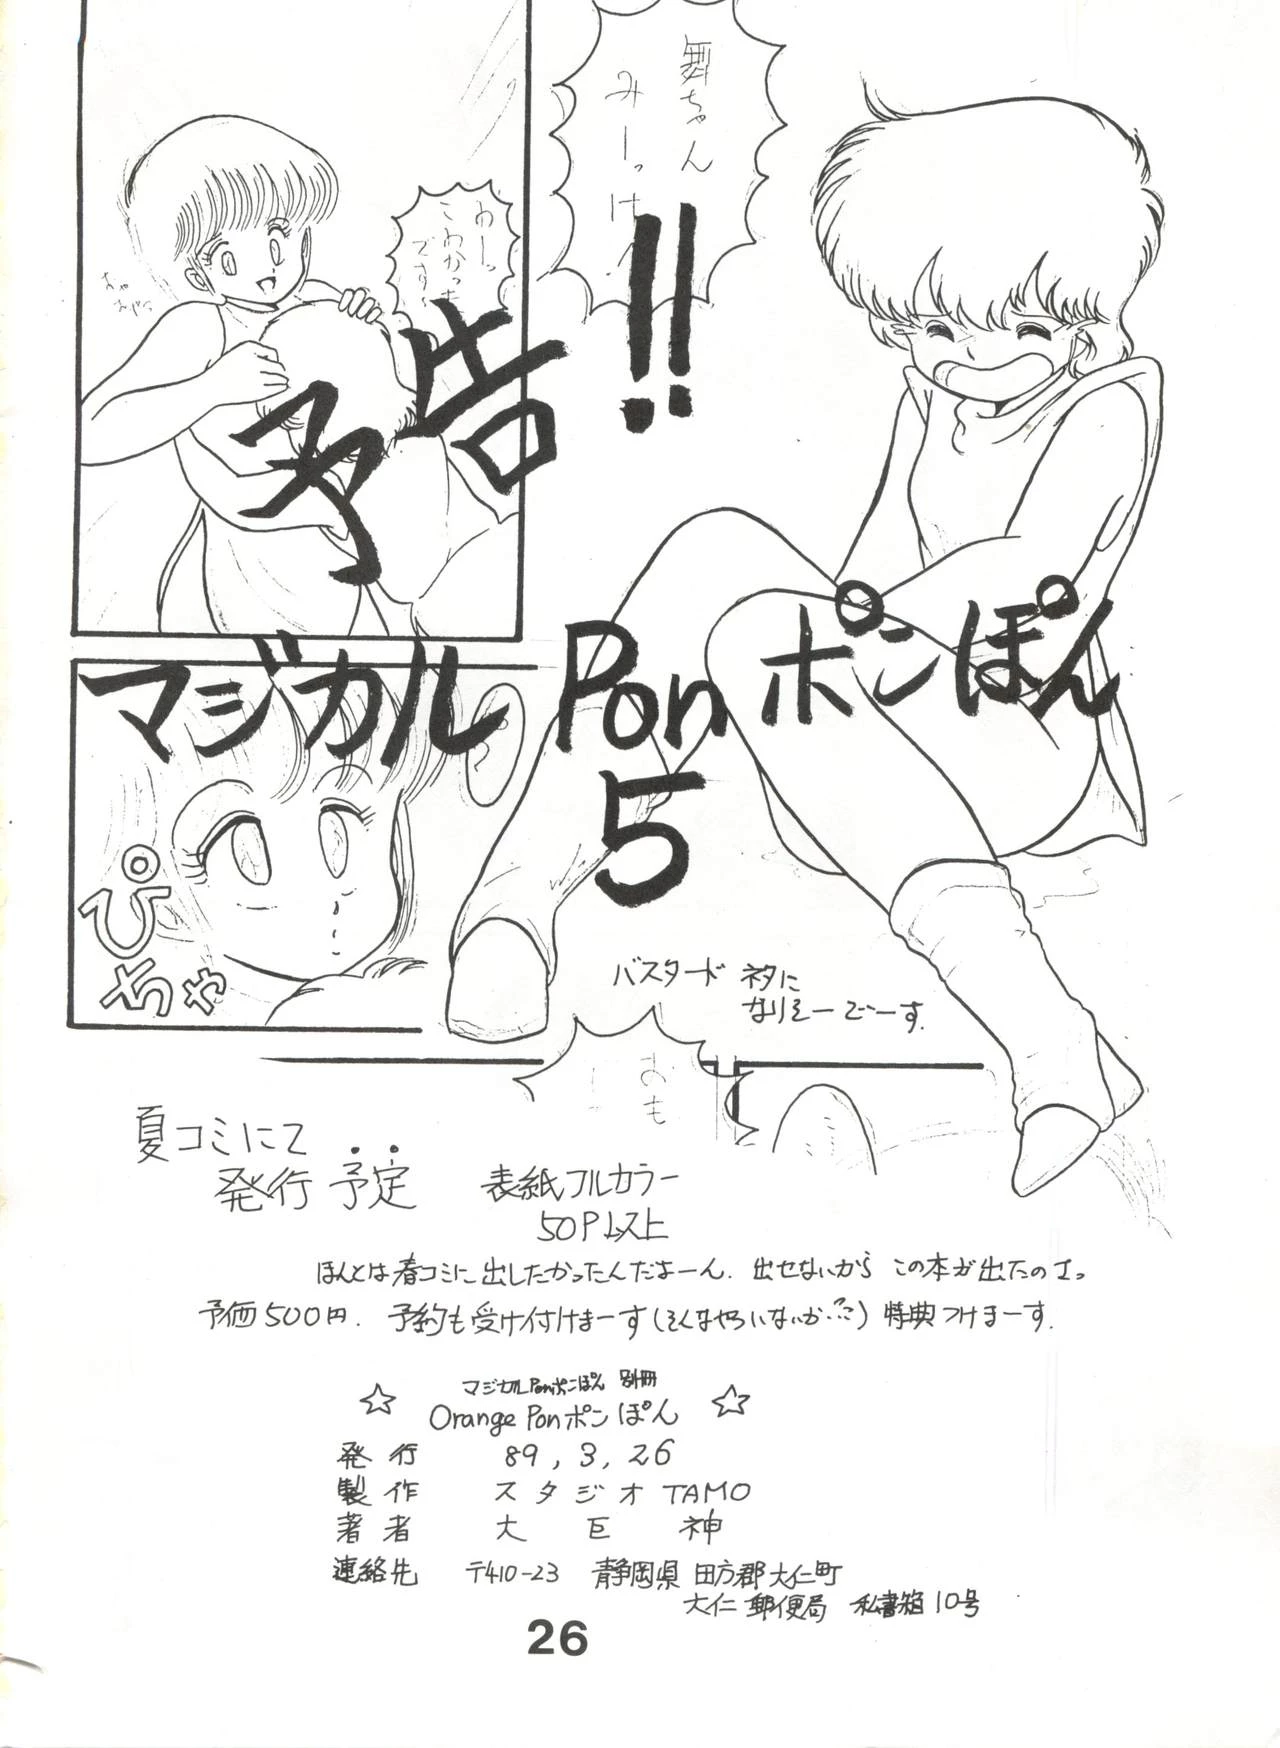 舞ちゃん
みーっけ
予告!!
マジカル Pon ポンぽん
5
ぴちゃ
バスタード ネタに
なりそーでーす.
おも
夏コミにて
発行 予定
表紙フルカラー
50P以上
ほんとは春コミに出したかったんだよーん. 出せないから この本が出たのさっ
予価500円. 予約も受け付けまーす(そんなやついないか…?) 特典つけまーす.
マジカルPonポンぽん 別冊
☆ Orange Pon ポンぽん ☆
発行 89, 3, 26
製作 スタジオ TAMO
著者 大巨神
連絡先 〒410-23 静岡県 田方郡 大仁町
大仁郵便局 私書箱10号
26